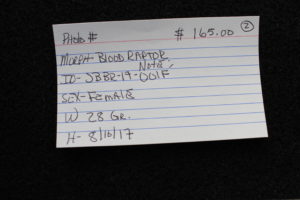 Photo # $ 165.00 2
Morph- Blood Raptor
Note:
ID- JBBR-19-001F
Sex- Female
W) 28 Gr.
H- 8/10/17